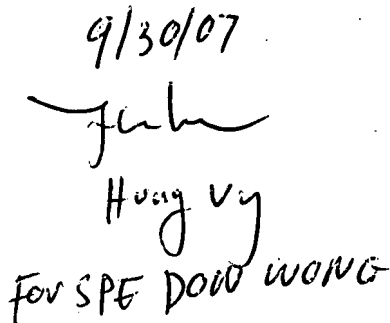 9/30/07
Hung Vy
For SPE DON WONG